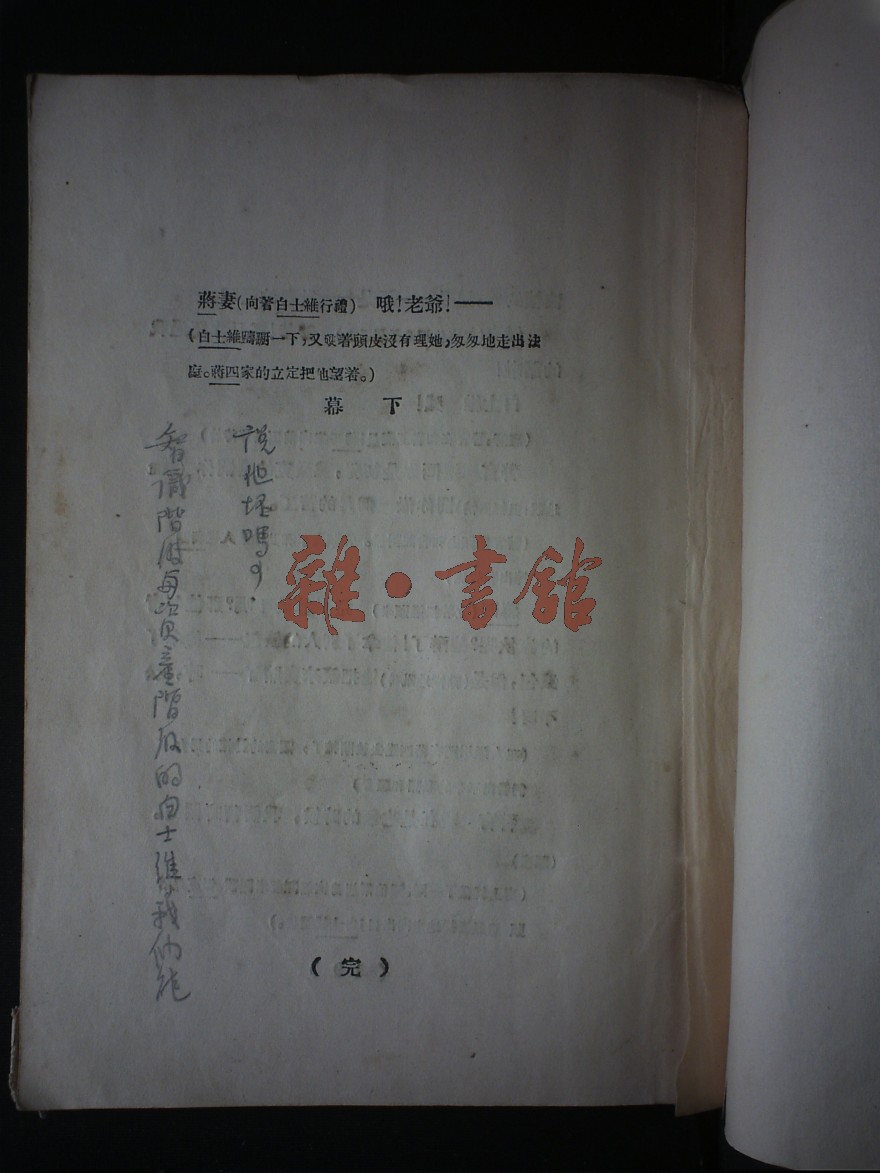 蔣妻(向著白士維行禮) 哦!老爺!——
(白士維躊躇一下,又硬著頭皮沒有理她,匆匆地走出法
庭。蔣四家的立定把他望著。)
幕 下
智識階級與資產階級的白士維,我們能
說他壞嗎?
人
雜·書館
(完)